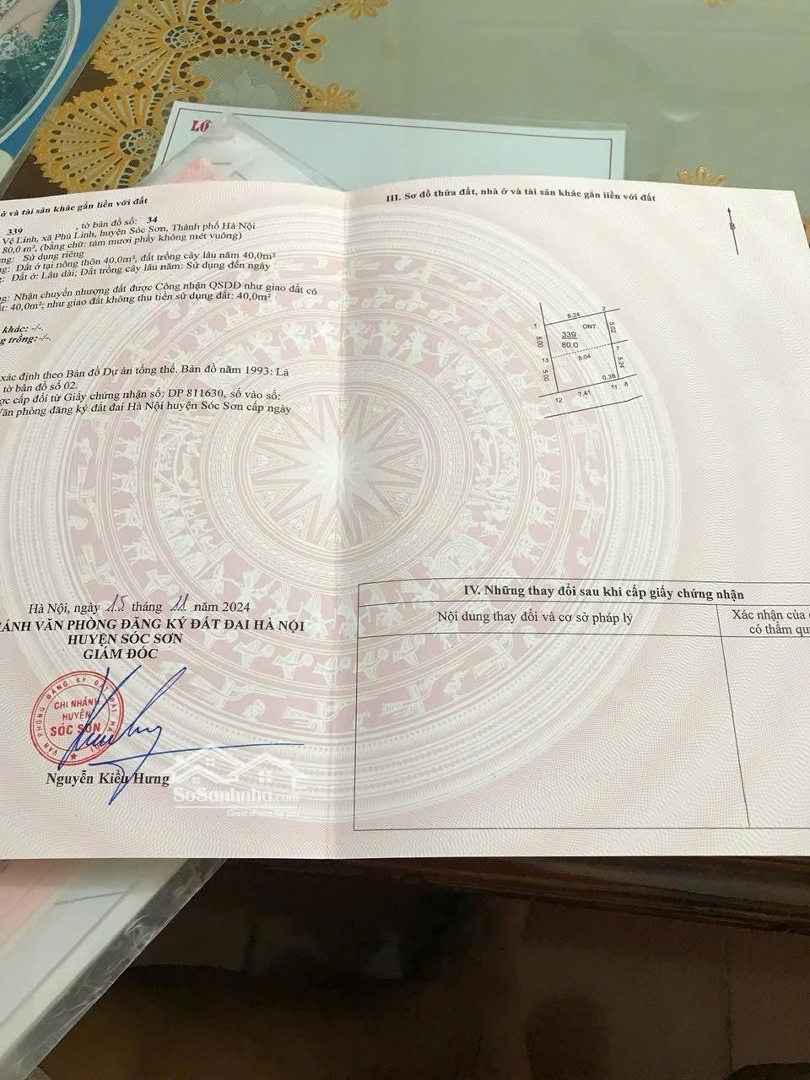 LÔ
ở và tài sản khác gắn liền với đất
339 , tờ bản đồ số: 34
Vệ Linh, xã Phù Linh, huyện Sóc Sơn, Thành phố Hà Nội
80,0 m², (bằng chữ: tám mươi phẩy không mét vuông)
ng: Sử dụng riêng
ng: Đất ở tại nông thôn 40,0m², đất trồng cây lâu năm 40,0m²
g: Đất ở: Lâu dài; Đất trồng cây lâu năm: Sử dụng đến ngày
ng: Nhận chuyển nhượng đất được Công nhận QSDĐ như giao đất có
ất: 40,0m²; như giao đất không thu tiền sử dụng đất: 40,0m²
khác: -/-.
g trồng:-/-.
xác định theo Bản đồ Dự án tổng thể. Bản đồ năm 1993: Là
tờ bản đồ số 02.
ợc cấp đổi từ Giấy chứng nhận số: DP 811630, số vào sổ:
Văn phòng đăng ký đất đai Hà Nội huyện Sóc Sơn cấp ngày
Hà Nội, ngày 15 tháng 11 năm 2024
HÁNH VĂN PHÒNG ĐĂNG KÝ ĐẤT ĐAI HÀ NỘI
HUYỆN SÓC SƠN
GIÁM ĐỐC
VĂN PHÒNG ĐĂNG KÝ ĐẤT ĐAI HÀ NỘI
CHI NHÁNH
HUYỆN
SÓC SƠN
Nguyễn Kiều Hưng
SoSanhnha.com
III. Sơ đồ thửa đất, nhà ở và tài sản khác gắn liền với đất
B
1 6.24 2
ONT
339
80.0
5.00
5.00
13 8.04 7
5.00
5.24
0.38
12 7.41 11 8
IV. Những thay đổi sau khi cấp giấy chứng nhận
Nội dung thay đổi và cơ sở pháp lý
Xác nhận của
có thẩm qu